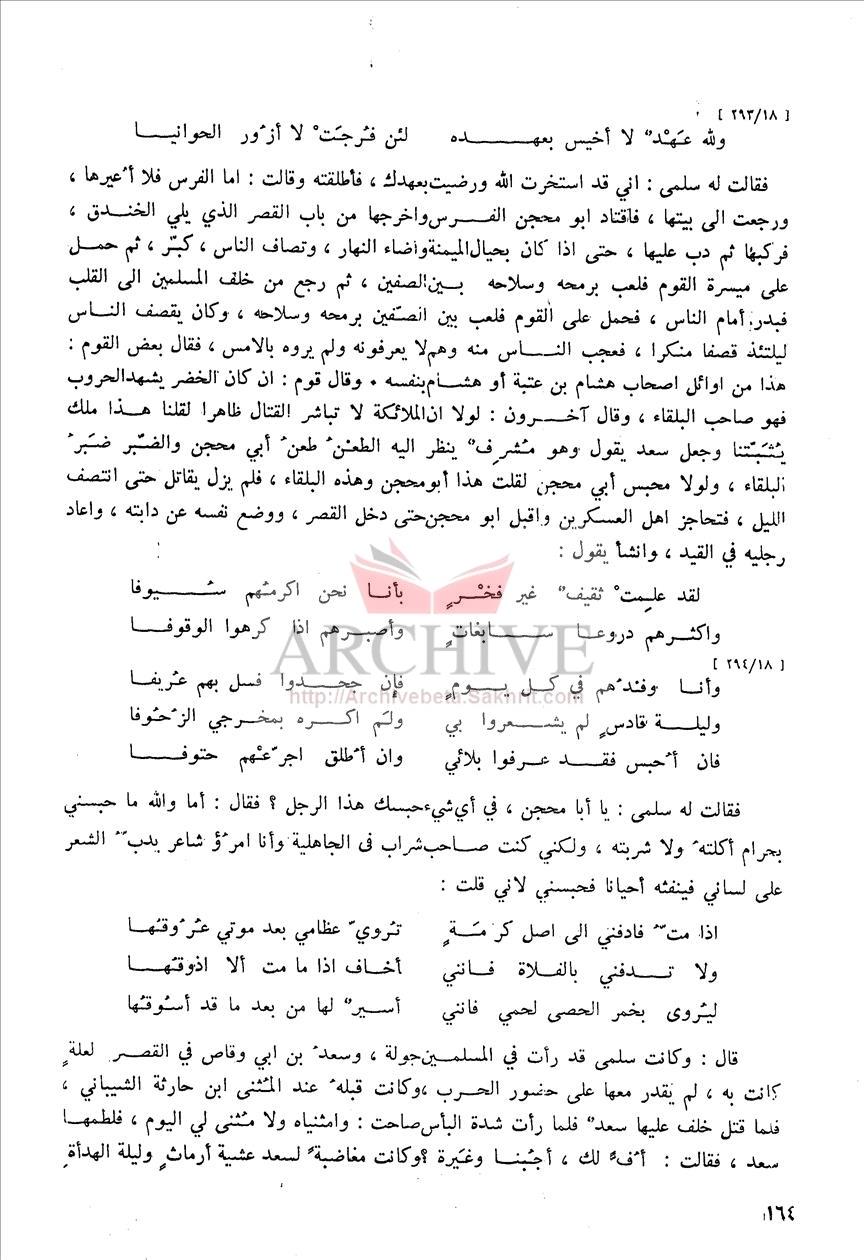 [ ٢٩٣/١٨ ]
ولله عَهْدٌ لا أخيس بعهـــــده لئن فُرجَتْ لا أزُور الحوانيـــا
فقالت له سلمى : اني قد استخرت الله ورضيت بعهدك ، فأطلقته وقالت : اما الفرس فلا أُعيرها ،
ورجعت الى بيتها ، فاقتاد ابو محجن الفـــرس واخرجها من باب القصر الذي يلي الخندق ،
فركبها ثم دب عليها ، حتى اذا كان بحيال الميمنة وأضاء النهار ، وتصاف الناس ، كبّر ، ثم حمل
على ميسرة القوم فلعب برمحه وسلاحه بــين الصفين ، ثم رجع من خلف المسلمين الى القلب
فبدر أمام الناس ، فحمل على القوم فلعب بين الصّفين برمحه وسلاحه ، وكان يقصف النــاس
ليلتئذ قصفا منكرا ، فعجب النـــاس منه وهم لا يعرفونه ولم يروه بالامس ، فقال بعض القوم :
هذا من اوائل اصحاب هشام بن عتبة أو هشــام بنفسه . وقال قوم : ان كان الخضر يشهد الحروب
فهو صاحب البلقاء ، وقال آخـــرون : لولا ان الملائكة لا تباشر القتال ظاهرا لقلنا هـــذا ملك
يُثَبّتنا وجعل سعد يقول وهو مُشرِفٌ ينظر اليه الطعْنُ طعنُ أبي محجن والضّبر ضَبَرُ
البلقاء ، ولولا محبس أبي محجن لقلت هذا أبو محجن وهذه البلقاء ، فلم يزل يقاتل حتى انتصف
الليل ، فتحاجز اهل العسكرين واقبل ابو محجن حتى دخل القصر ، ووضع نفسه عن دابته ، واعاد
رجليه في القيد ، وانشأ يقول :
لقد علِمتْ ثقيفٌ غير فخْـــرٍ بأنــا نحن اكرمُهم سُـــيوفا
واكثــرهم دروعــا ســـابغاتٍ وأصبــرهم اذا كرهوا الوقوفــا
[ ٢٩٤/١٨ ]
وأنــا وفدُهم في كــل يــومٍ فإن جحــدوا فسل بهم عُريفــا
وليلــة قادسٍ لم يشــعروا بي ولم اكــره بمخرجي الزحُوفا
فان أُحبس فقــد عــرفوا بلائي وان أُطلق اجرّعْهم حتوفــا
فقالت له سلمى : يا أبا محجن ، في أي شيء حبسك هذا الرجل ؟ فقال : أما والله ما حبسني
بحرام أكلتهُ ولا شربته ، ولكني كنت صاحب شراب في الجاهلية وأنا امرُؤ شاعر يدبُّ الشعر
على لساني فينفثه أحيانا فحبسني لاني قلت :
اذا متُّ فادفني الى اصل كرمَــةٍ تُروّي عظامي بعد موتي عُرُوقُهــا
ولا تـــدفني بالفــلاة فــانني أخــاف اذا ما مت ألا اذوقهــا
ليُروى بخمر الحصى لحمي فانني أســيرٌ لها من بعد ما قد أسُوقُها
قال : وكانت سلمى قد رأت في المسلمين جولة ، وسعدُ بن ابي وقاص في القصــر لعلةٍ
كانت به ، لم يقدر معها على حضور الحــرب ، وكانت قبلهُ عند المُثنى ابن حارثة الشيباني ،
فلما قتل خلف عليها سعدٌ فلما رأت شدة البأس صاحت : وامثنياه ولا مُثنى لي اليوم ، فلطمهــا
سعد ، فقالت : أُفٍّ لك ، أجُبنــا وغَيرة ؟ وكانت مغاضبةً لسعد عشية أرماثٍ وليلة الهدأةِ
١٦٤
ARCHIVE
http://Archivebeta.Sakhrit.com